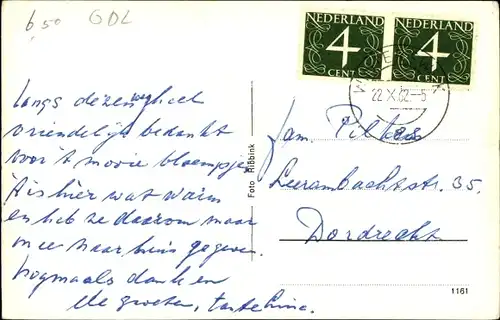 6,50 GDL
NEDERLAND NEDERLAND
4 4
CENT CENT
22.X.62.-5
Langs deze weg heel
vriendelijk bedankt
voor 't mooie bloempje
't is hier wat warm
en heb ze daarom maar
mee naar huis gegeven
nogmaals dank en
de groeten, tante
Foto Ribbink
Fam.
Leerambachtstr. 35.
Dordrecht
1161